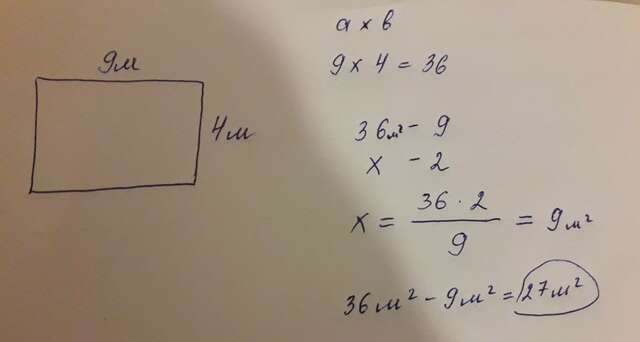 9м
4м
а х в
9 х 4 = 36
36м² - 9
х - 2
х = 36 · 2 / 9 = 9м²
36м² - 9м² = 27м²